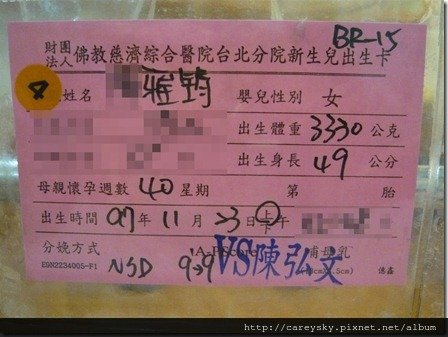 BR-15
財團法人 佛教慈濟綜合醫院台北分院新生兒出生卡
8
姓名 雅筠 嬰兒性別 女
出生體重 3330 公克
出生身長 49 公分
母親懷孕週數 40 星期 第 胎
出生時間 97年 11月 23日 上午
分娩方式 A.P.Score 哺母乳
VS陳弘文
EGN2234005-F1 NSD 9→9 億鑫
http://careysky.pixnet.net/album